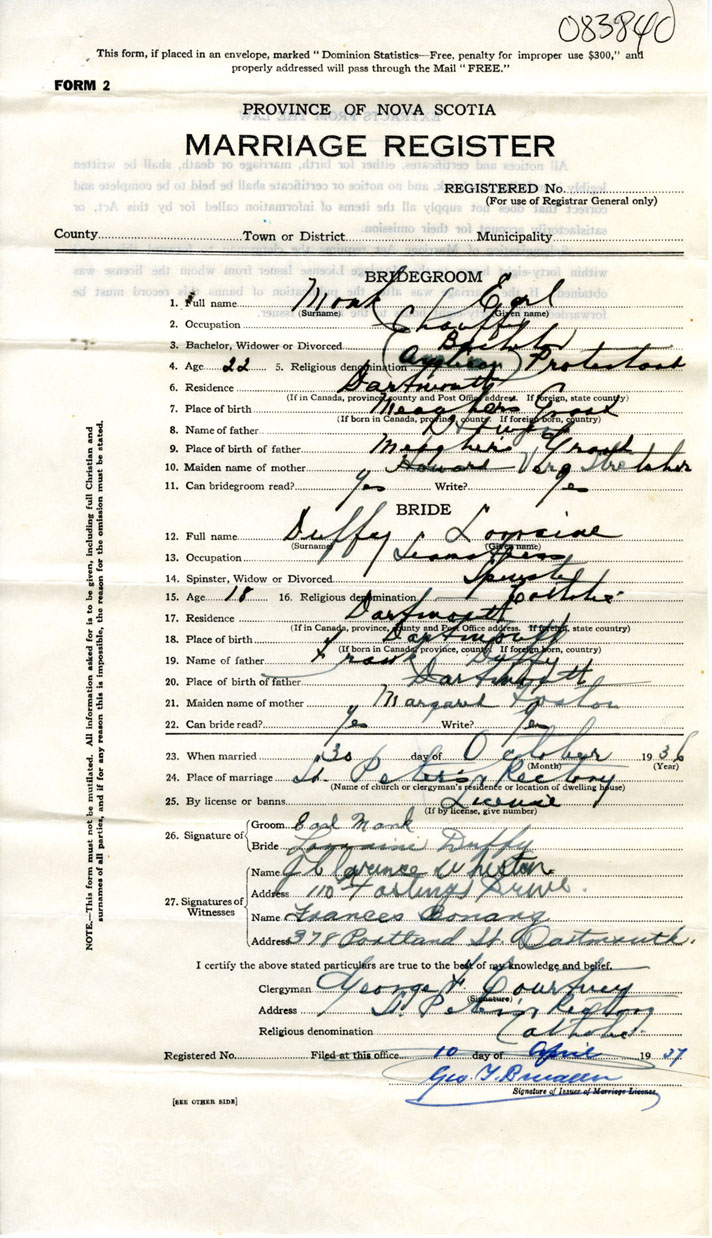 083840
This form, if placed in an envelope, marked "Dominion Statistics—Free, penalty for improper use $300," and
properly addressed will pass through the Mail "FREE."
FORM 2
PROVINCE OF NOVA SCOTIA
MARRIAGE REGISTER
REGISTERED No.
(For use of Registrar General only)
County Town or District Municipality
BRIDEGROOM
1. Full name Monk Earl
(Surname) (Given name)
2. Occupation
3. Bachelor, Widower or Divorced Bachelor
4. Age 22 5. Religious denomination (Anglican) Protestant
6. Residence Dartmouth
(If in Canada, province, county and Post Office address. If foreign, state country)
7. Place of birth Meaghers Grant
(If born in Canada, province, county. If foreign born, country)
8. Name of father
9. Place of birth of father Meaghers Grant
10. Maiden name of mother Howard
11. Can bridegroom read? Yes Write? Yes
BRIDE
12. Full name Duffy Lorraine
(Surname) (Given name)
13. Occupation
14. Spinster, Widow or Divorced Spinster
15. Age 18 16. Religious denomination Catholic
17. Residence Dartmouth
(If in Canada, province, county and Post Office address. If foreign, state country)
18. Place of birth Dartmouth
(If born in Canada, province, county. If foreign born, country)
19. Name of father Frank Duffy
20. Place of birth of father Dartmouth
21. Maiden name of mother Margaret
22. Can bride read? Yes Write? Yes
23. When married 30 day of October 1936
(Month) (Year)
24. Place of marriage St. Peter's Rectory
(Name of church or clergyman's residence or location of dwelling house)
25. By license or banns License
(If by license, give number)
26. Signature of Groom Earl Monk
Bride Lorraine Duffy
27. Signatures of Witnesses Name Clarence Whiston
Address 110
Name Frances Conang
Address 378 Portland St. Dartmouth.
I certify the above stated particulars are true to the best of my knowledge and belief.
Clergyman George F Courtney
(Signature)
Address St. Peter's Rectory
Religious denomination Catholic.
Registered No. Filed at this office 10 day of April 1937
Geo. T.
Signature of Issuer of Marriage License.
[SEE OTHER SIDE]
NOTE.—This form must not be mutilated. All information asked for is to be given, including full Christian and
surnames of all parties, and if for any reason this is impossible, the reason for the omission must be stated.